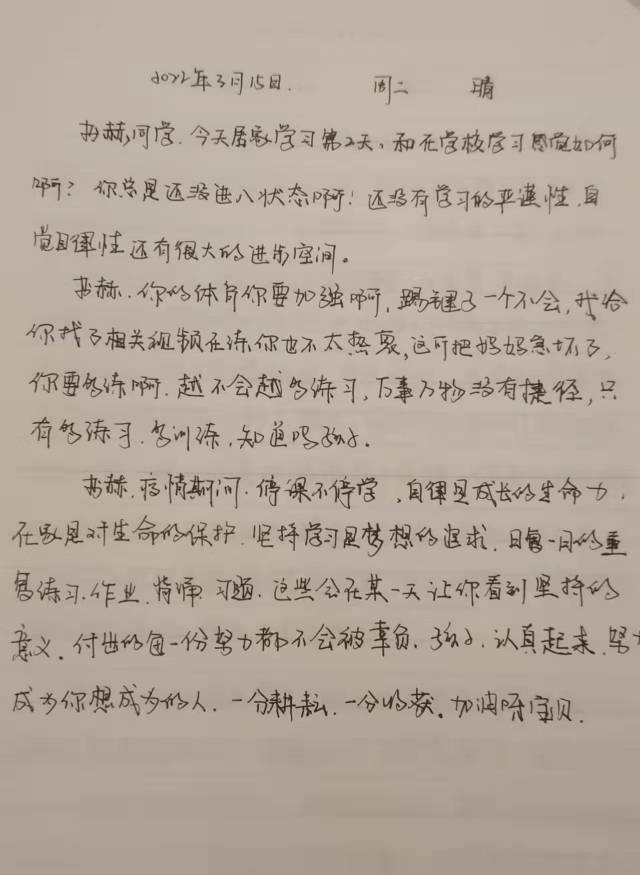 2022年3月15日. 周二 晴
书赫同学.今天居家学习第2天,和在学校学习感觉如何
啊?你总是还没进入状态啊!还没有学习的严谨性.自
觉自律性还有很大的进步空间。
书赫.你的体育你要加强啊,踢毽子一个不会,我给
你找了相关视频在练你也不太热衷,这可把妈妈急坏了,
你要多练啊.越不会越多练习,万事万物没有捷径,只
有多练习.多训练,知道吗孩子.
书赫.疫情期间.停课不停学,自律是成长的生命力,
在家是对生命的保护.坚持学习是梦想的追求.日复一日的重
复练习.作业.背诵.习题.这些会在某一天让你看到坚持的
意义.付出的每一份努力都不会被辜负.孩子.认真起来.努力
成为你想成为的人.一分耕耘.一分收获。加油呀宝贝.